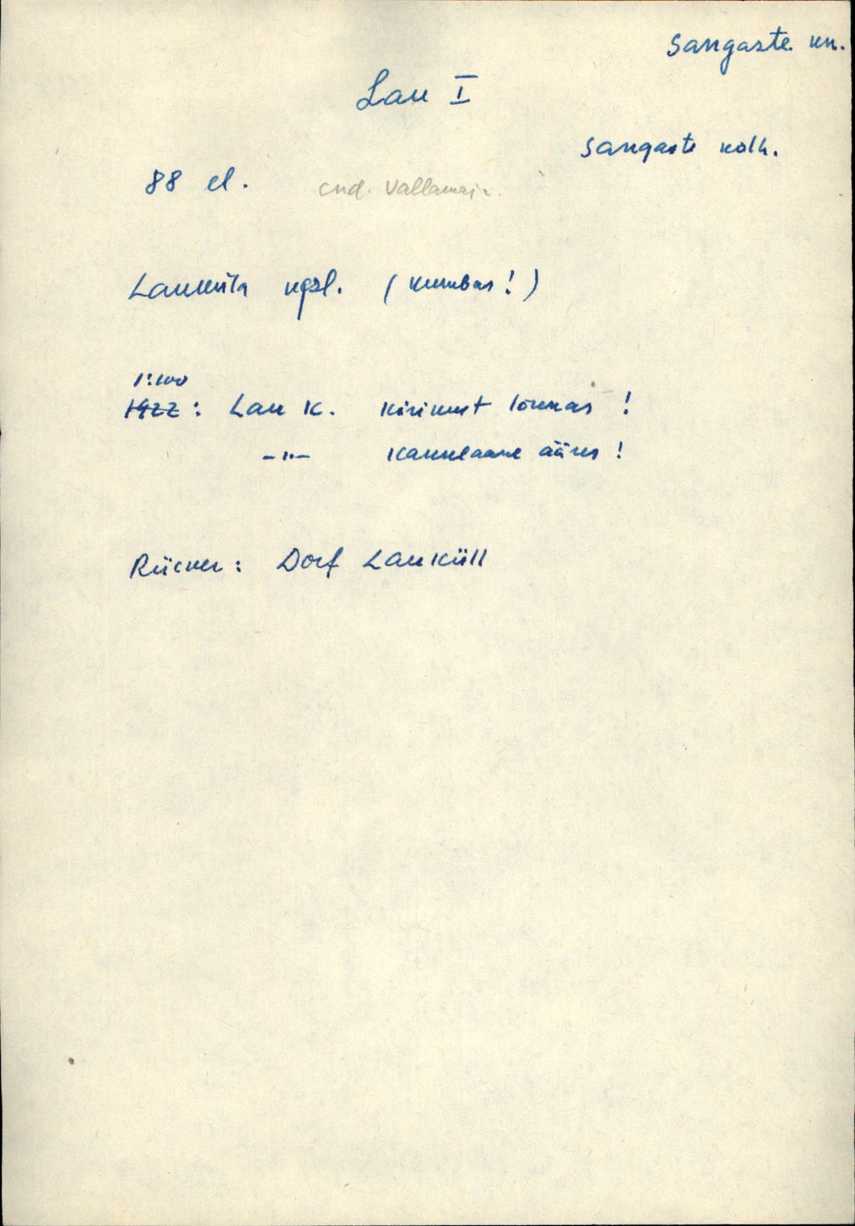 Sangaste kn.
Lau I
Sangaste kolh.
88 el. end. Vallamaja.
Lauküla ngsl. (kumbas!)
1:100
1922: Lau k. kirikust lõunas!
-"- Karulaane ääres!
Rücker: Dorf Lauküll